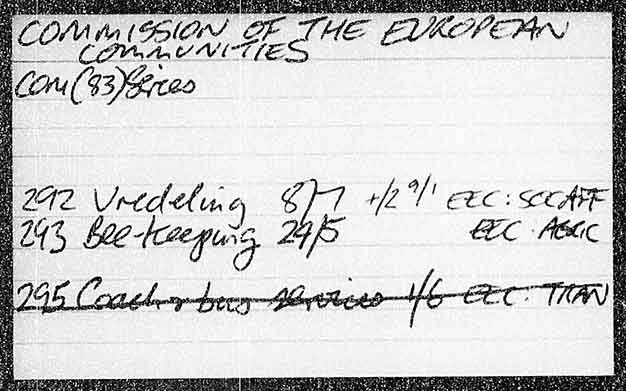 COMMISSION OF THE EUROPEAN
COMMUNITIES
COM(83)Series
292 Vredeling 8/7 +/2 9/1 EEC: SOC AFF
293 Bee-keeping 24/5 EEC: AGRIC
295 Coach & bus services 1/6 EEC: TRAN